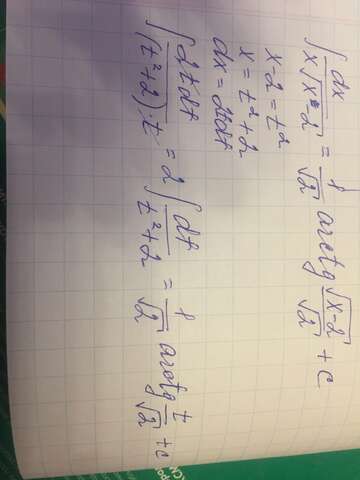 ∫ dx / (x√(x-2)) = 1/√2 arctg √(x-2)/√2 + c
x-2 = t²
x = t²+2
dx = 2tdt
∫ 2tdt / ((t²+2)·t) = 2 ∫ dt / (t²+2) = 1/√2 arctg t/√2 + c